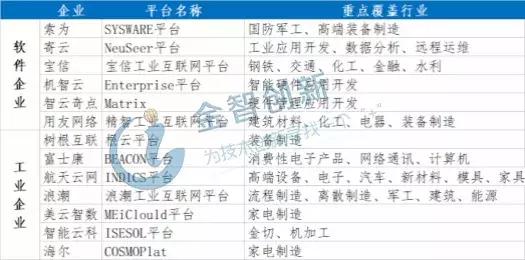 企业 平台名称 重点覆盖行业
软件企业
索为 SYSWARE平台 国防军工、高端装备制造
寄云 NeuSeer平台 工业应用开发、数据分析、远程运维
宝信 宝信工业互联网平台 钢铁、交通、化工、金融、水利
机智云 Enterprise平台 智能硬件应用开发
智云奇点 Matrix 硬件管理应用开发
用友网络 精智工业互联网平台 建筑材料、化工、电器、装备制造
工业企业
树根互联 根云平台 装备制造
富士康 BEACON平台 消费性电子产品、网络通讯、计算机
航天云网 INDICS平台 高端设备、电子、汽车、新材料、模具、家具
浪潮 浪潮工业互联网平台 流程制造、离散制造、军工、建筑、能源
美云智数 MEiClould平台 家电制造
智能云科 ISESOL平台 金切、机加工
海尔 COSMOPlat 家电制造
全智创新
为技术